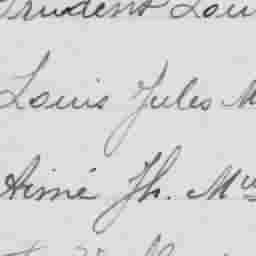 Prudent Lou
Louis Jules M
Aimé Jh. Mu